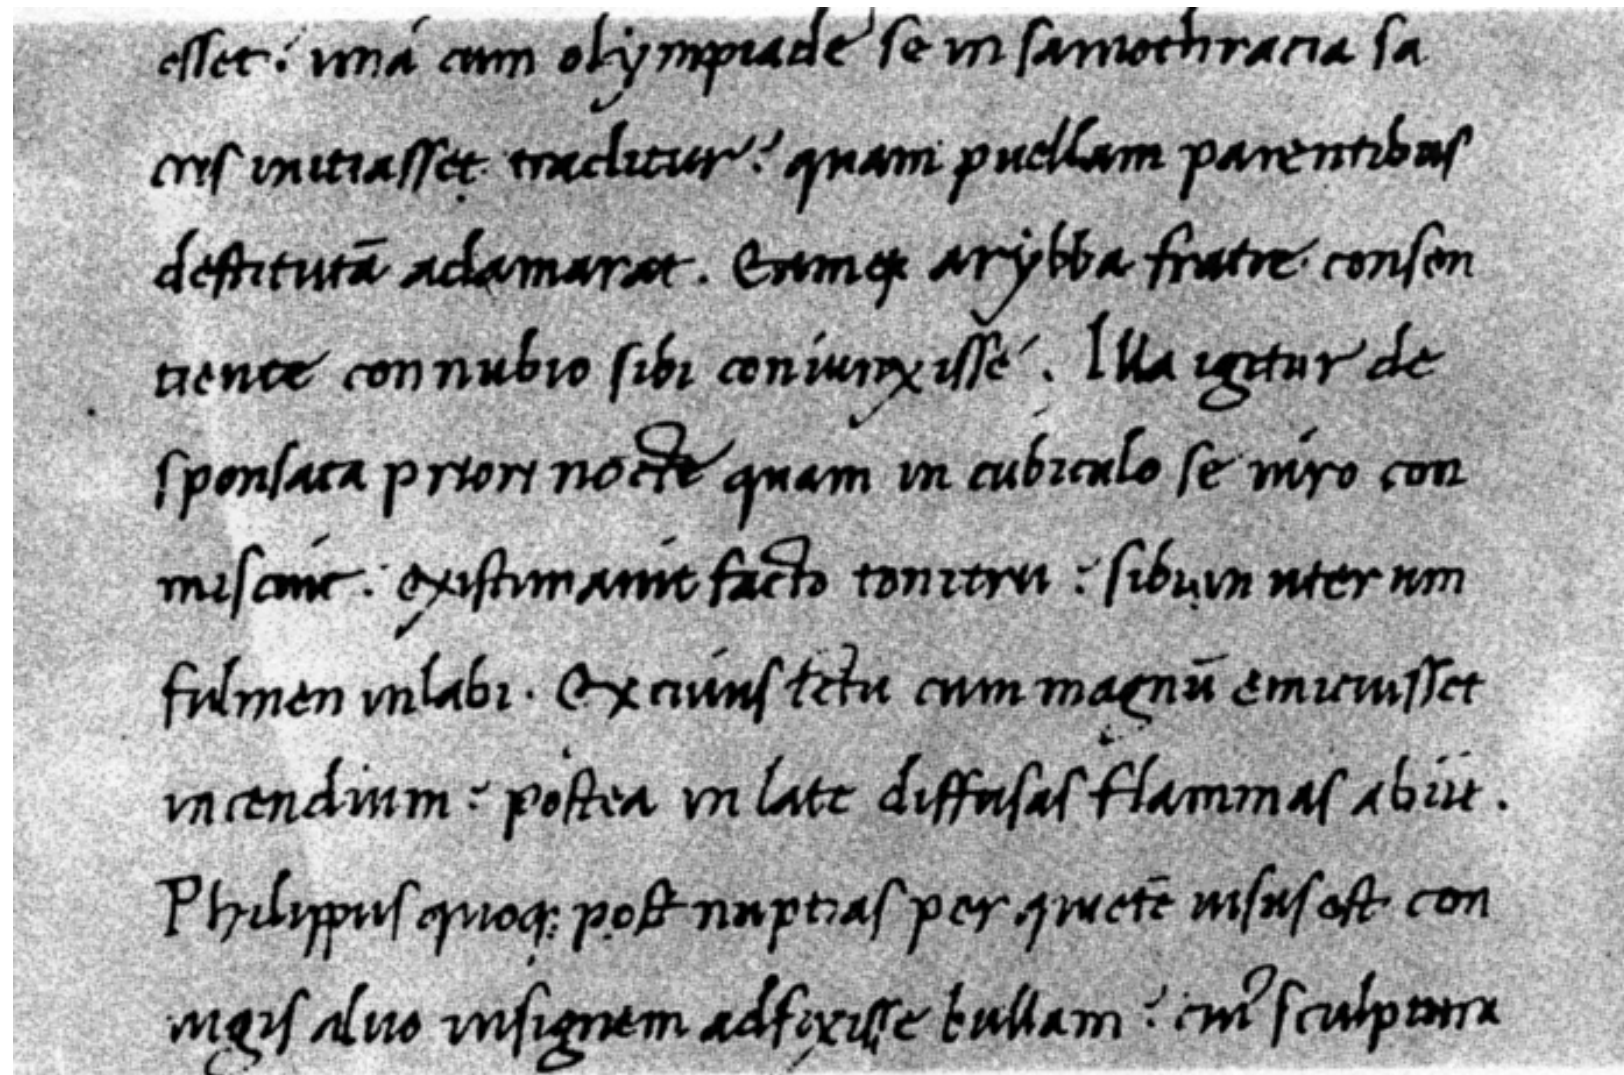 esset: una cum olympiade se in samothracia sa
cris initiasset traditur: quam puellam parentibus
destitutā adamarat. Eamqꝫ arybba fratre consen
tiente connubio sibi coniunxisse. Illa igitur de
sponsata priori nocte quam in cubiculo se uiro con
miscuit: existimauit facto tonitru: sibi in uterum
fulmen inlabi. Ex cuius ictu cum magnū emicuisset
incendium: postea in late diffusas flammas abiit.
Philippus quoqꝫ post nuptias per quietē uisus est con
iugis aluo insignem adfixisse bullam: cuiꝰ sculptura